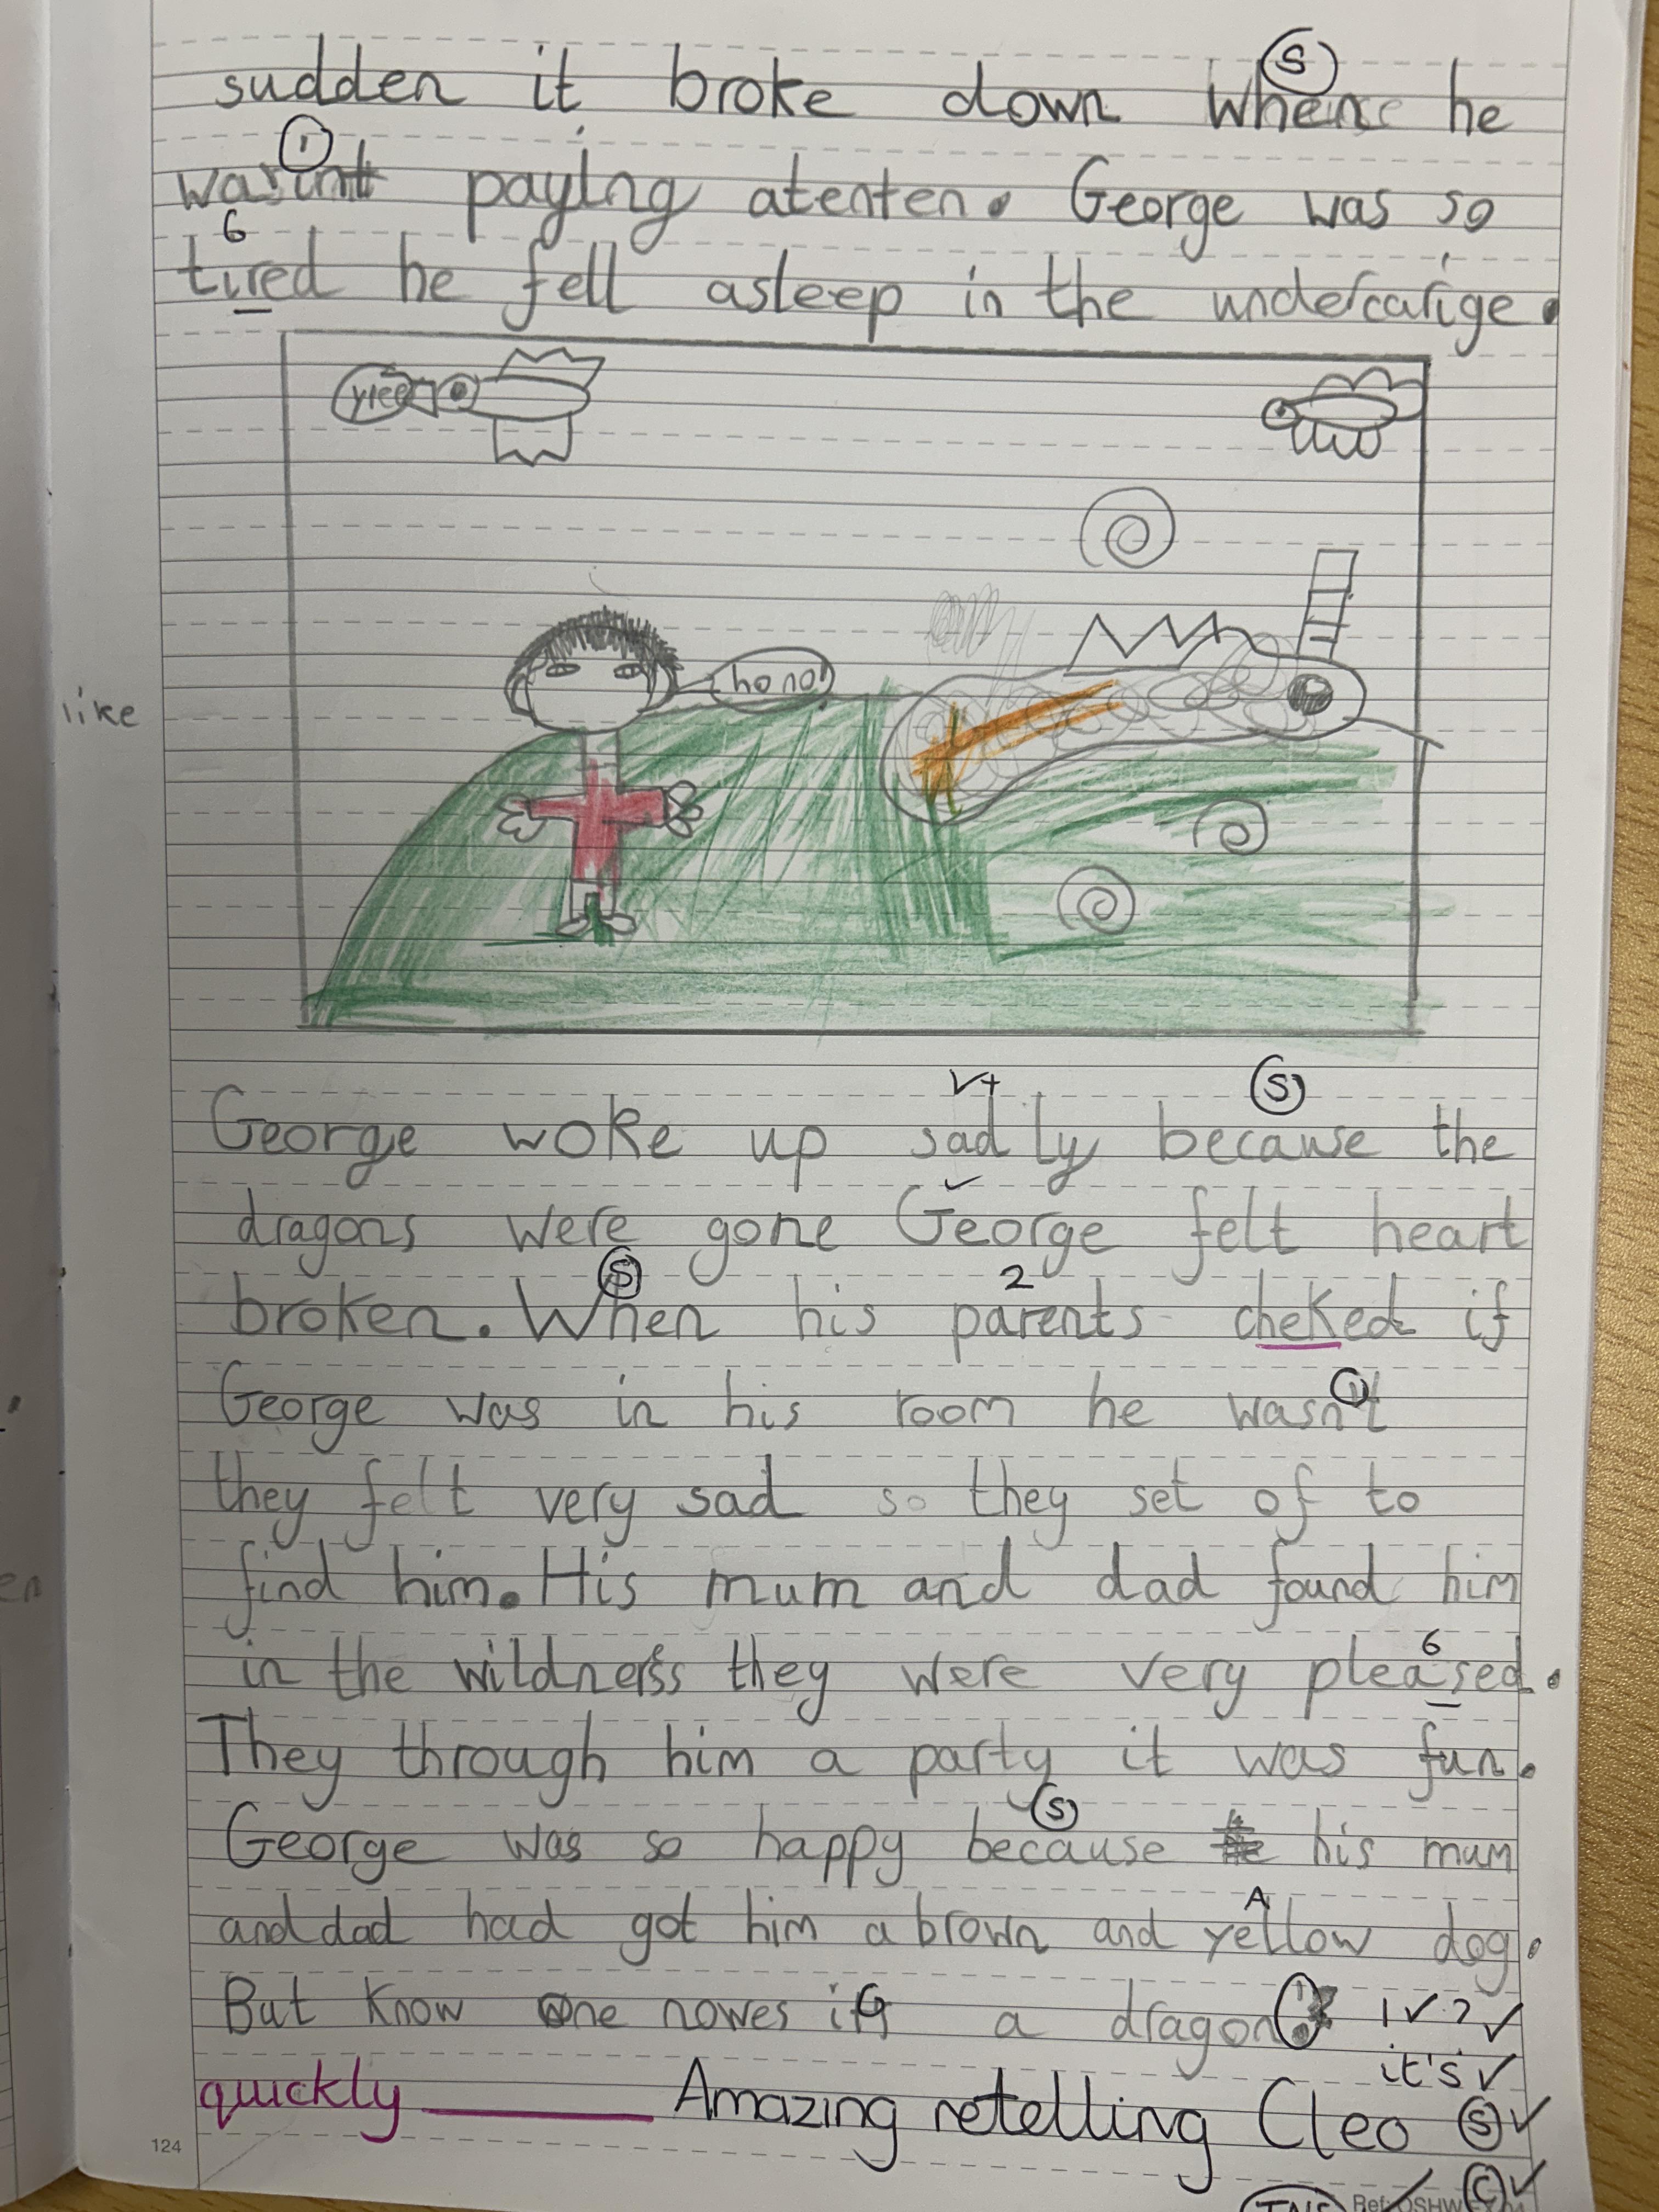 S
sudden it broke down when he
wasint paying atenten. George was so
6
tired he fell asleep in the undercarige.
yiee
ho no!
like
V+ S
George woke up sadly because the
✓
dragons were gone George felt heart
S 2
broken. When his parents cheked if
George was in his room he wasn't
they felt very sad so they set of to
find him. His mum and dad found him
6
in the wildness they were very pleased.
They through him a party it was fun.
S
George was so happy because his mum
A
and dad had got him a brown and yellow dog.
en
But know one nowes a dragon! 1✓ ?✓
it's ✓
quickly Amazing retelling Cleo S✓
124
C✓
Ref: